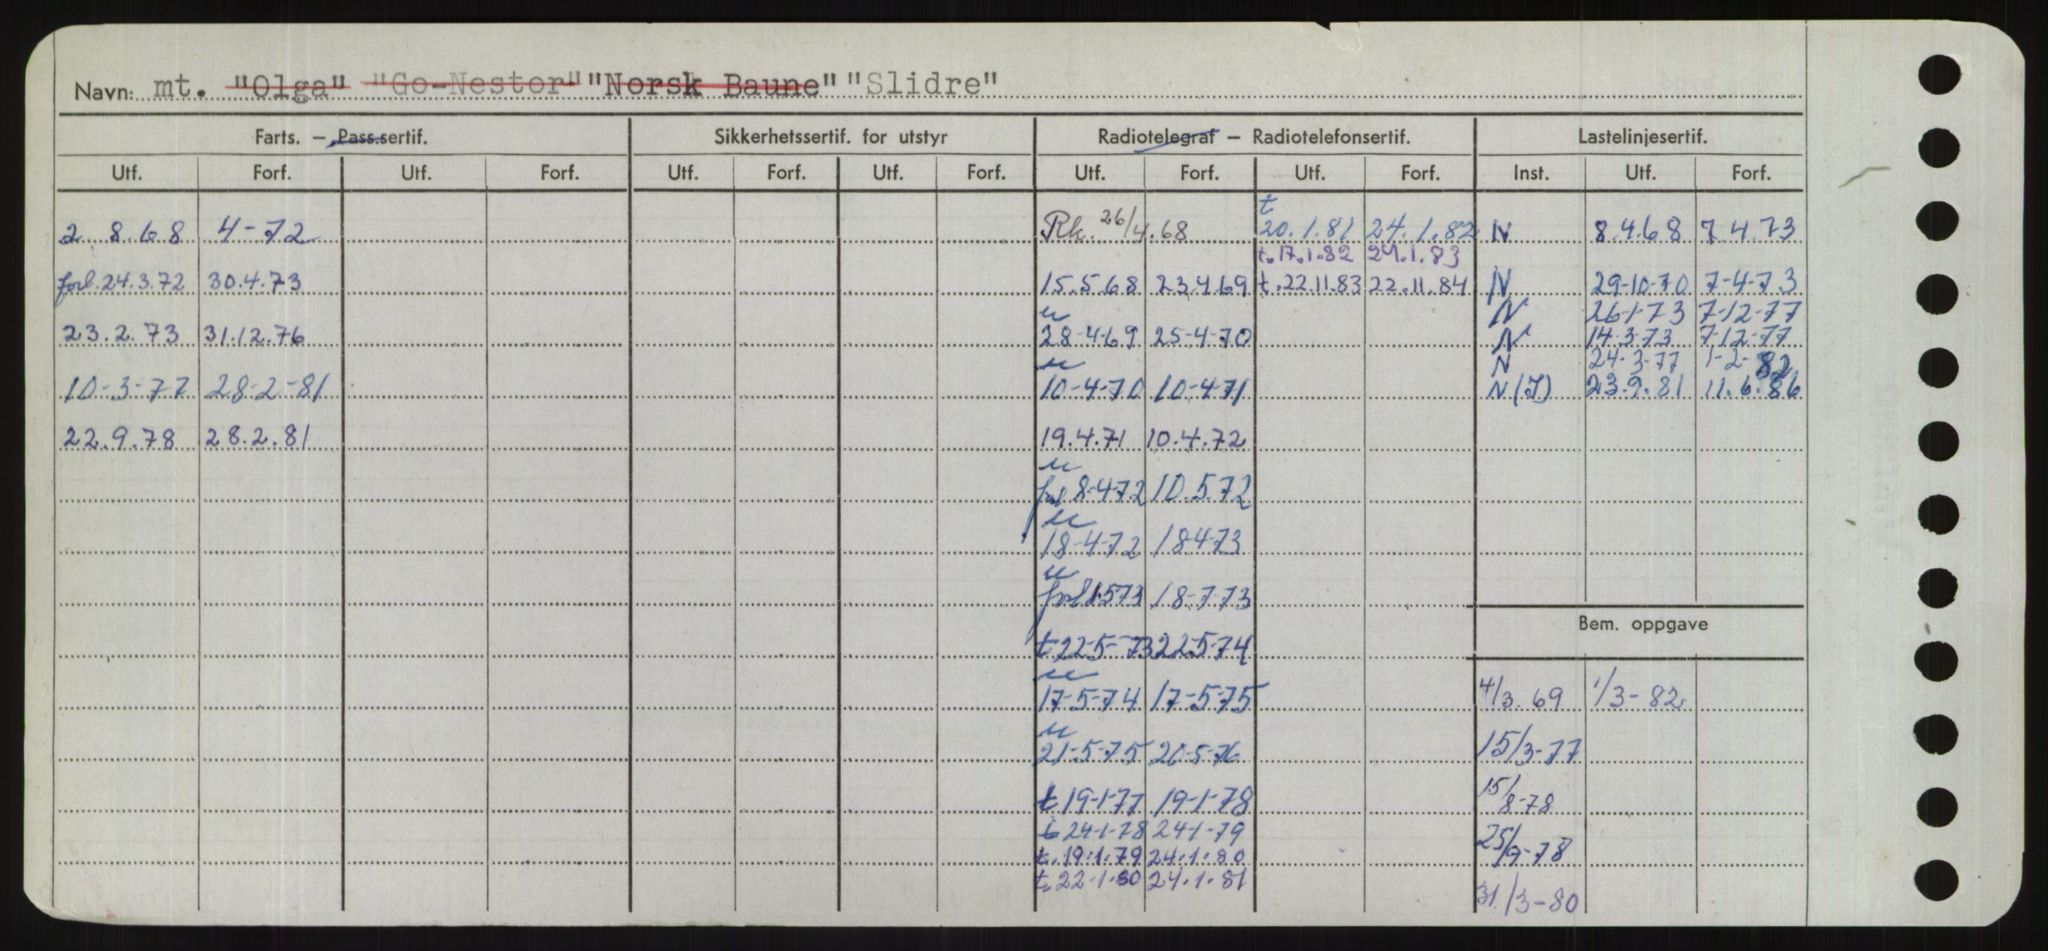 Navn: mt. "Olga" "Go-Nestor" "Norsk Baune" "Slidre"
Farts. – Pass.sertif. Sikkerhetssertif. for utstyr Radiotelegraf – Radiotelefonsertif. Lastelinjesertif.
Utf. Forf. Utf. Forf. Utf. Forf. Utf. Forf. Utf. Forf. Utf. Forf. Inst. Utf. Forf.
t
2.8.68 4-72 Rk. 26/4.68 20.1.81 24.1.82 N 8.4.68 7.4.73
t.17.1.82 24.1.83
forl.24.3.72 30.4.73 15.5.68 23.4.69 t.22.11.83 22.11.84 N 29-10-70 7-4-73
u N 26-1-73 7-12-77
23.2.73 31.12.76 28-4-69 25-4-70 N 14-3-73 7-12-77
u N 24-3-77 1-2-82
10-3-77 28-2-81 10-4-70 10-4-71 N(I) 23.9.81 11.6.86
22.9.78 28.2.81 19.4.71 10.4.72
u
forl 8-4-72 10.5.72
u
18-4-72 18-4-73
u
forl 1.5.73 18-7-73
Bem. oppgave
t 22-5-73 22-5-74
u
17-5-74 17-5-75 4/3.69 1/3-82
u
21-5-75 20-5-76 15/3-77
t 19-1-77 19-1-78 15/8-78
t 24-1-78 24-1-79
t.19.1.79 24.1.80 25/9-78
t.22.1.80 24.1.81
31/3-80